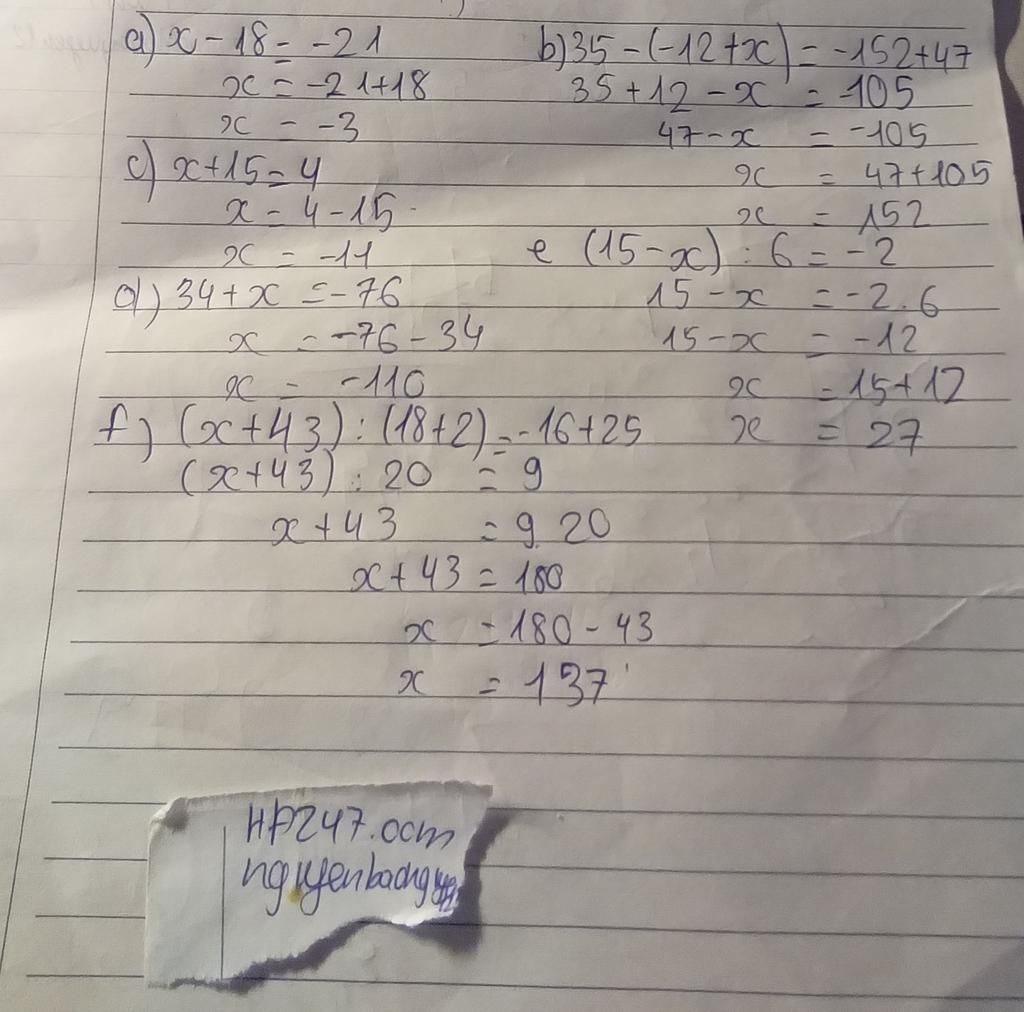 a) x - 18 = -21
x = -21+18
x = -3
c) x+15=4
x = 4-15
x = -11
d) 34+x = -76
x = -76-34
x = -110
b) 35-(-12+x) = -152+47
35+12-x = -105
47-x = -105
x = 47+105
x = 152
e (15-x) : 6 = -2
15-x = -2.6
15-x = -12
x = 15+12
x = 27
f) (x+43) : (18+2) = -16+25
(x+43) : 20 = 9
x+43 = 9.20
x+43 = 180
x = 180-43
x = 137